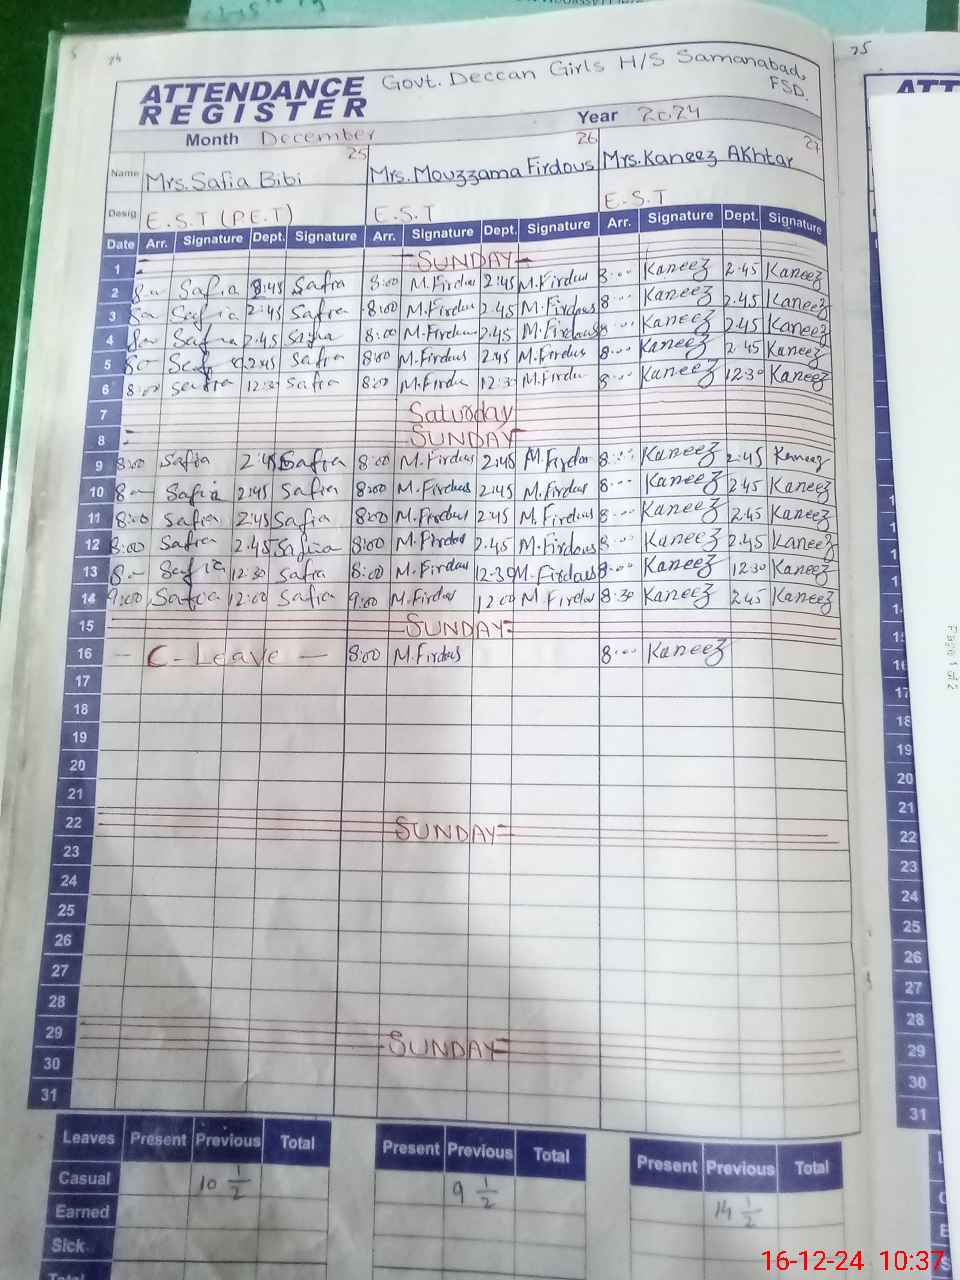 ATTENDANCE REGISTER
Govt. Deccan Girls H/S Samanabad, FSD.
Month December Year 2024
25 26 27
Name Mrs. Safia Bibi Mrs. Mouzzama Firdous Mrs. Kaneez Akhtar
Desig. E.S.T (P.E.T) E.S.T E.S.T
Date Arr. Signature Dept. Signature Arr. Signature Dept. Signature Arr. Signature Dept. Signature
1 SUNDAY
2 Safia Safia 8:00 M. Firdous 2:45 M. Firdous 8... Kaneez 2:45 Kaneez
3 Safia 2:45 Safia 8:00 M. Firdous 2:45 M. Firdous 8... Kaneez 2:45 Kaneez
4 Safia 2:45 Safia 8:00 M. Firdous 2:45 M. Firdous 8... Kaneez 2:45 Kaneez
5 2:45 Safia 8:00 M. Firdous 2:45 M. Firdous 8... Kaneez 2:45 Kaneez
6 8:00 Safia 12:30 Safia 8:00 M. Firdous 12:30 M. Firdous 8... Kaneez 12:30 Kaneez
7 Saturday
8 SUNDAY
9 8:00 Safia 2:45 Safia 8:00 M. Firdous 2:45 M. Firdous 8... Kaneez 2:45 Kaneez
10 Safia 2:45 Safia 8:00 M. Firdous 2:45 M. Firdous 8... Kaneez 2:45 Kaneez
11 8:00 Safia 2:45 Safia 8:00 M. Firdous 2:45 M. Firdous 8... Kaneez 2:45 Kaneez
12 8:00 Safia 2:45 Safia 8:00 M. Firdous 2:45 M. Firdous 8... Kaneez 2:45 Kaneez
13 Safia 12:30 Safia 8:00 M. Firdous 12:30 M. Firdous 8... Kaneez 12:30 Kaneez
14 9:00 Safia 12:00 Safia 9:00 M. Firdous 12:00 M. Firdous 8:30 Kaneez 2:45 Kaneez
15 SUNDAY
16 – C-Leave – 8:00 M. Firdous 8... Kaneez
17
18
19
20
21
22 SUNDAY
23
24
25
26
27
28
29 SUNDAY
30
31
Leaves Present Previous Total Present Previous Total Present Previous Total
Casual 10 1/2 9 1/2 14 1/2
Earned
Sick
Total
Page 1 of 2
16-12-24 10:37